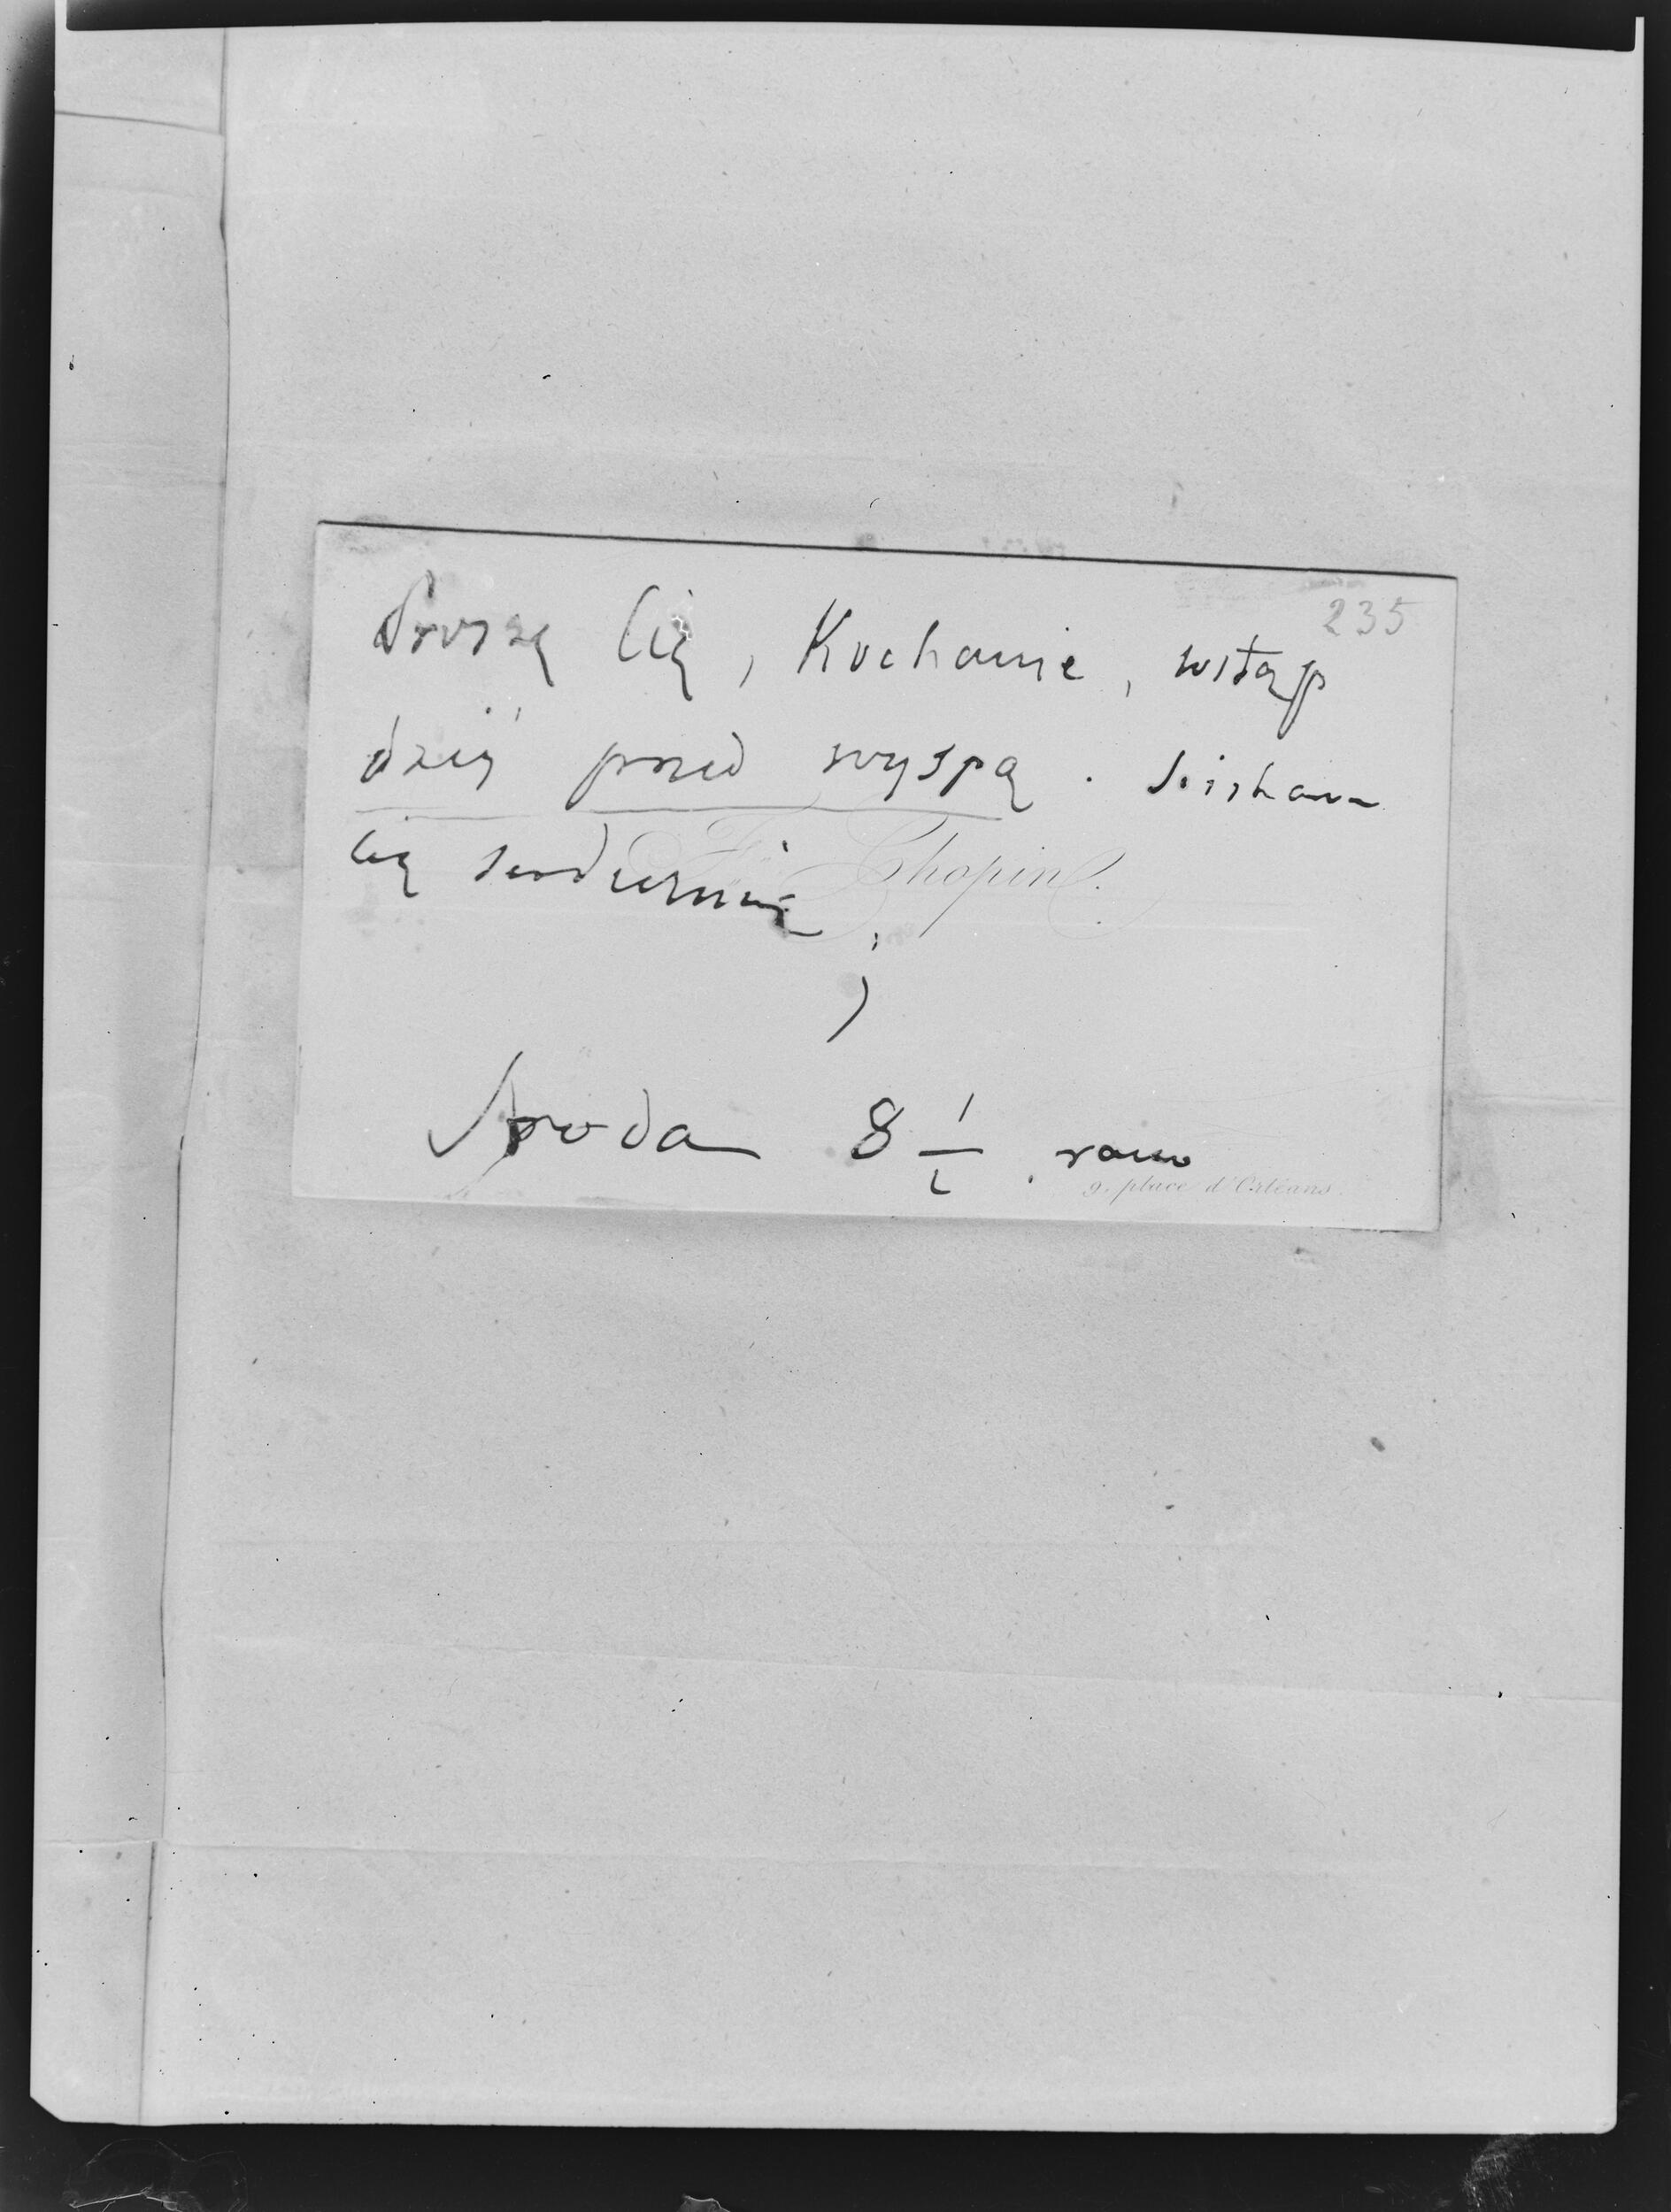 235
Proszę Cię, Kochanie, wstąp
dziś przed wyspą. Ściskam
Cię serdecznie
Fr. Chopin.
Środa 8 1/2 . rano
9. place d'Orléans.